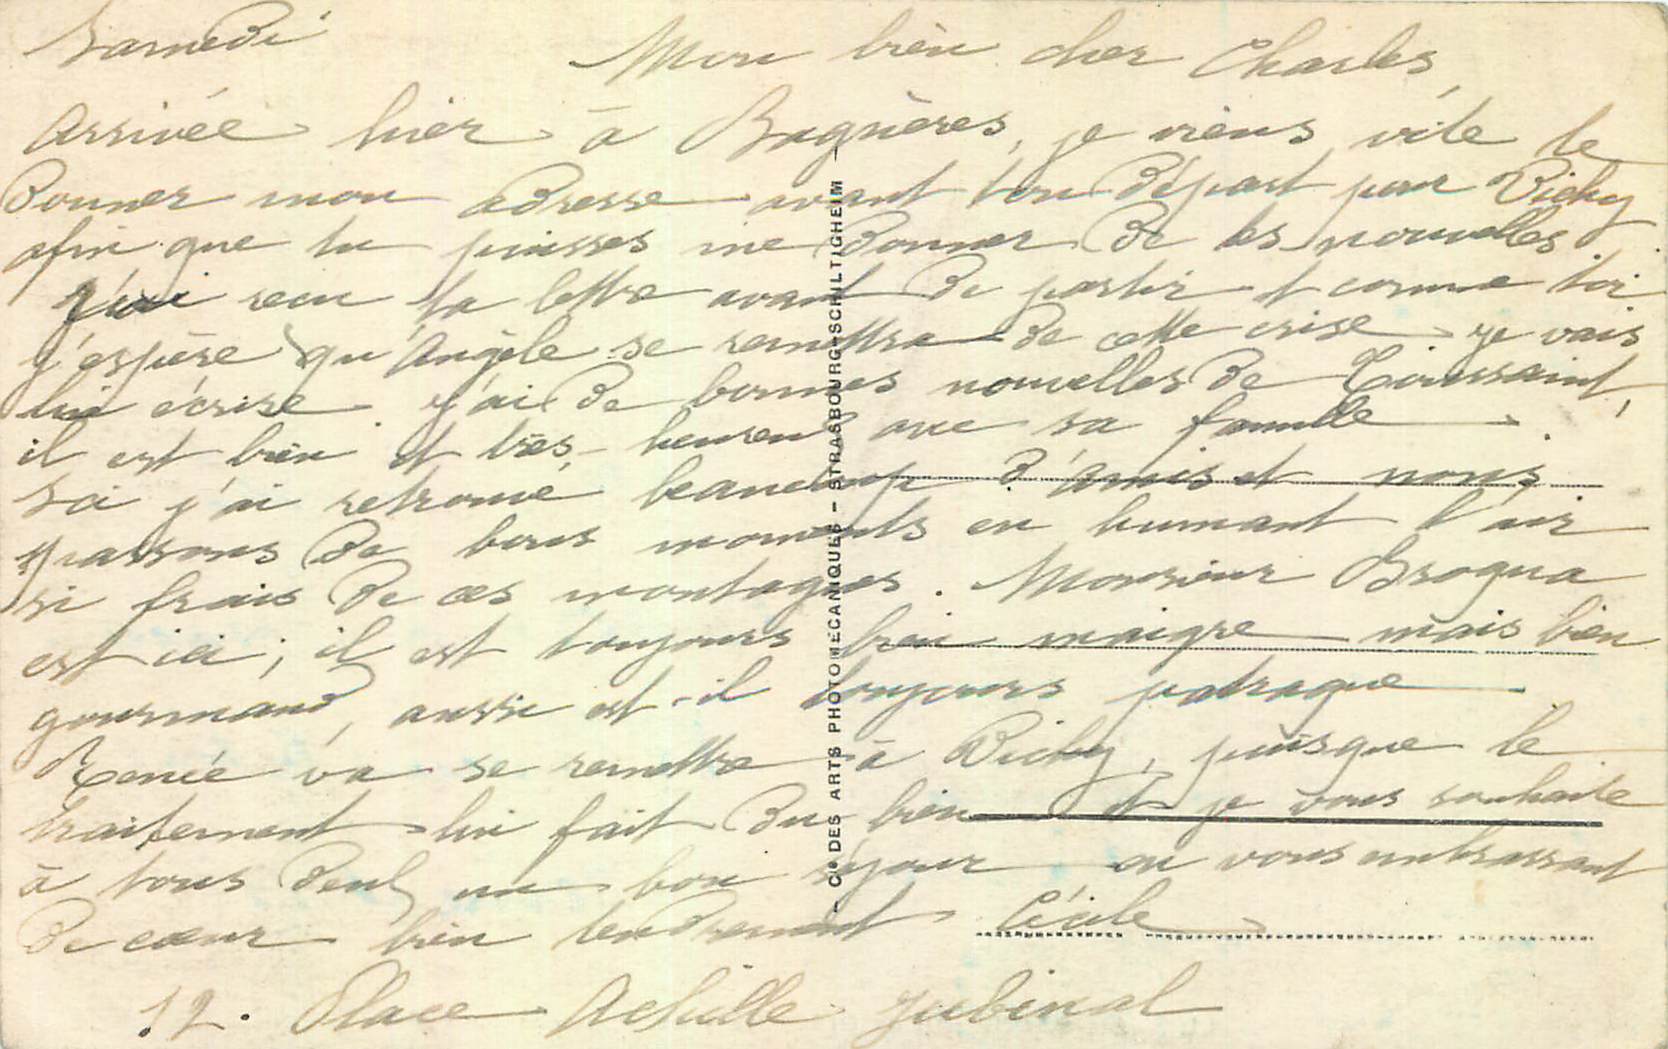 Samedi
Mon bien cher Charles,
Arrivée hier à Bagnères, je viens vite te
donner mon adresse avant ton départ pour Vichy
afin que tu puisses me donner de tes nouvelles
J'ai recu ta lettre avant de partir et comme toi
j'espère qu'Angèle se remettra de cette crise je vais
lui écrire. j'ai de bonnes nouvelles de Toussaint,
il est bien et très heureux avec sa famille.
Ici j'ai retrouvé beaucoup d'amis et nous
passons de bons moments en humant l'air
si frais de ces montagnes. Monsieur
est ici ; il est toujours bien maigre mais bien
gourmand, aussi est-il toujours patraque.
Renée va se remettre à Vichy, puisque le
traitement lui fait du bien et je vous souhaite
à tous deux un bon séjour en vous embrassant
de coeur bien tendrement Cécile
12. Place Achille Jubinal
- Cie DES ARTS PHOTOMÉCANIQUES - STRASBOURG-SCHILTIGHEIM -